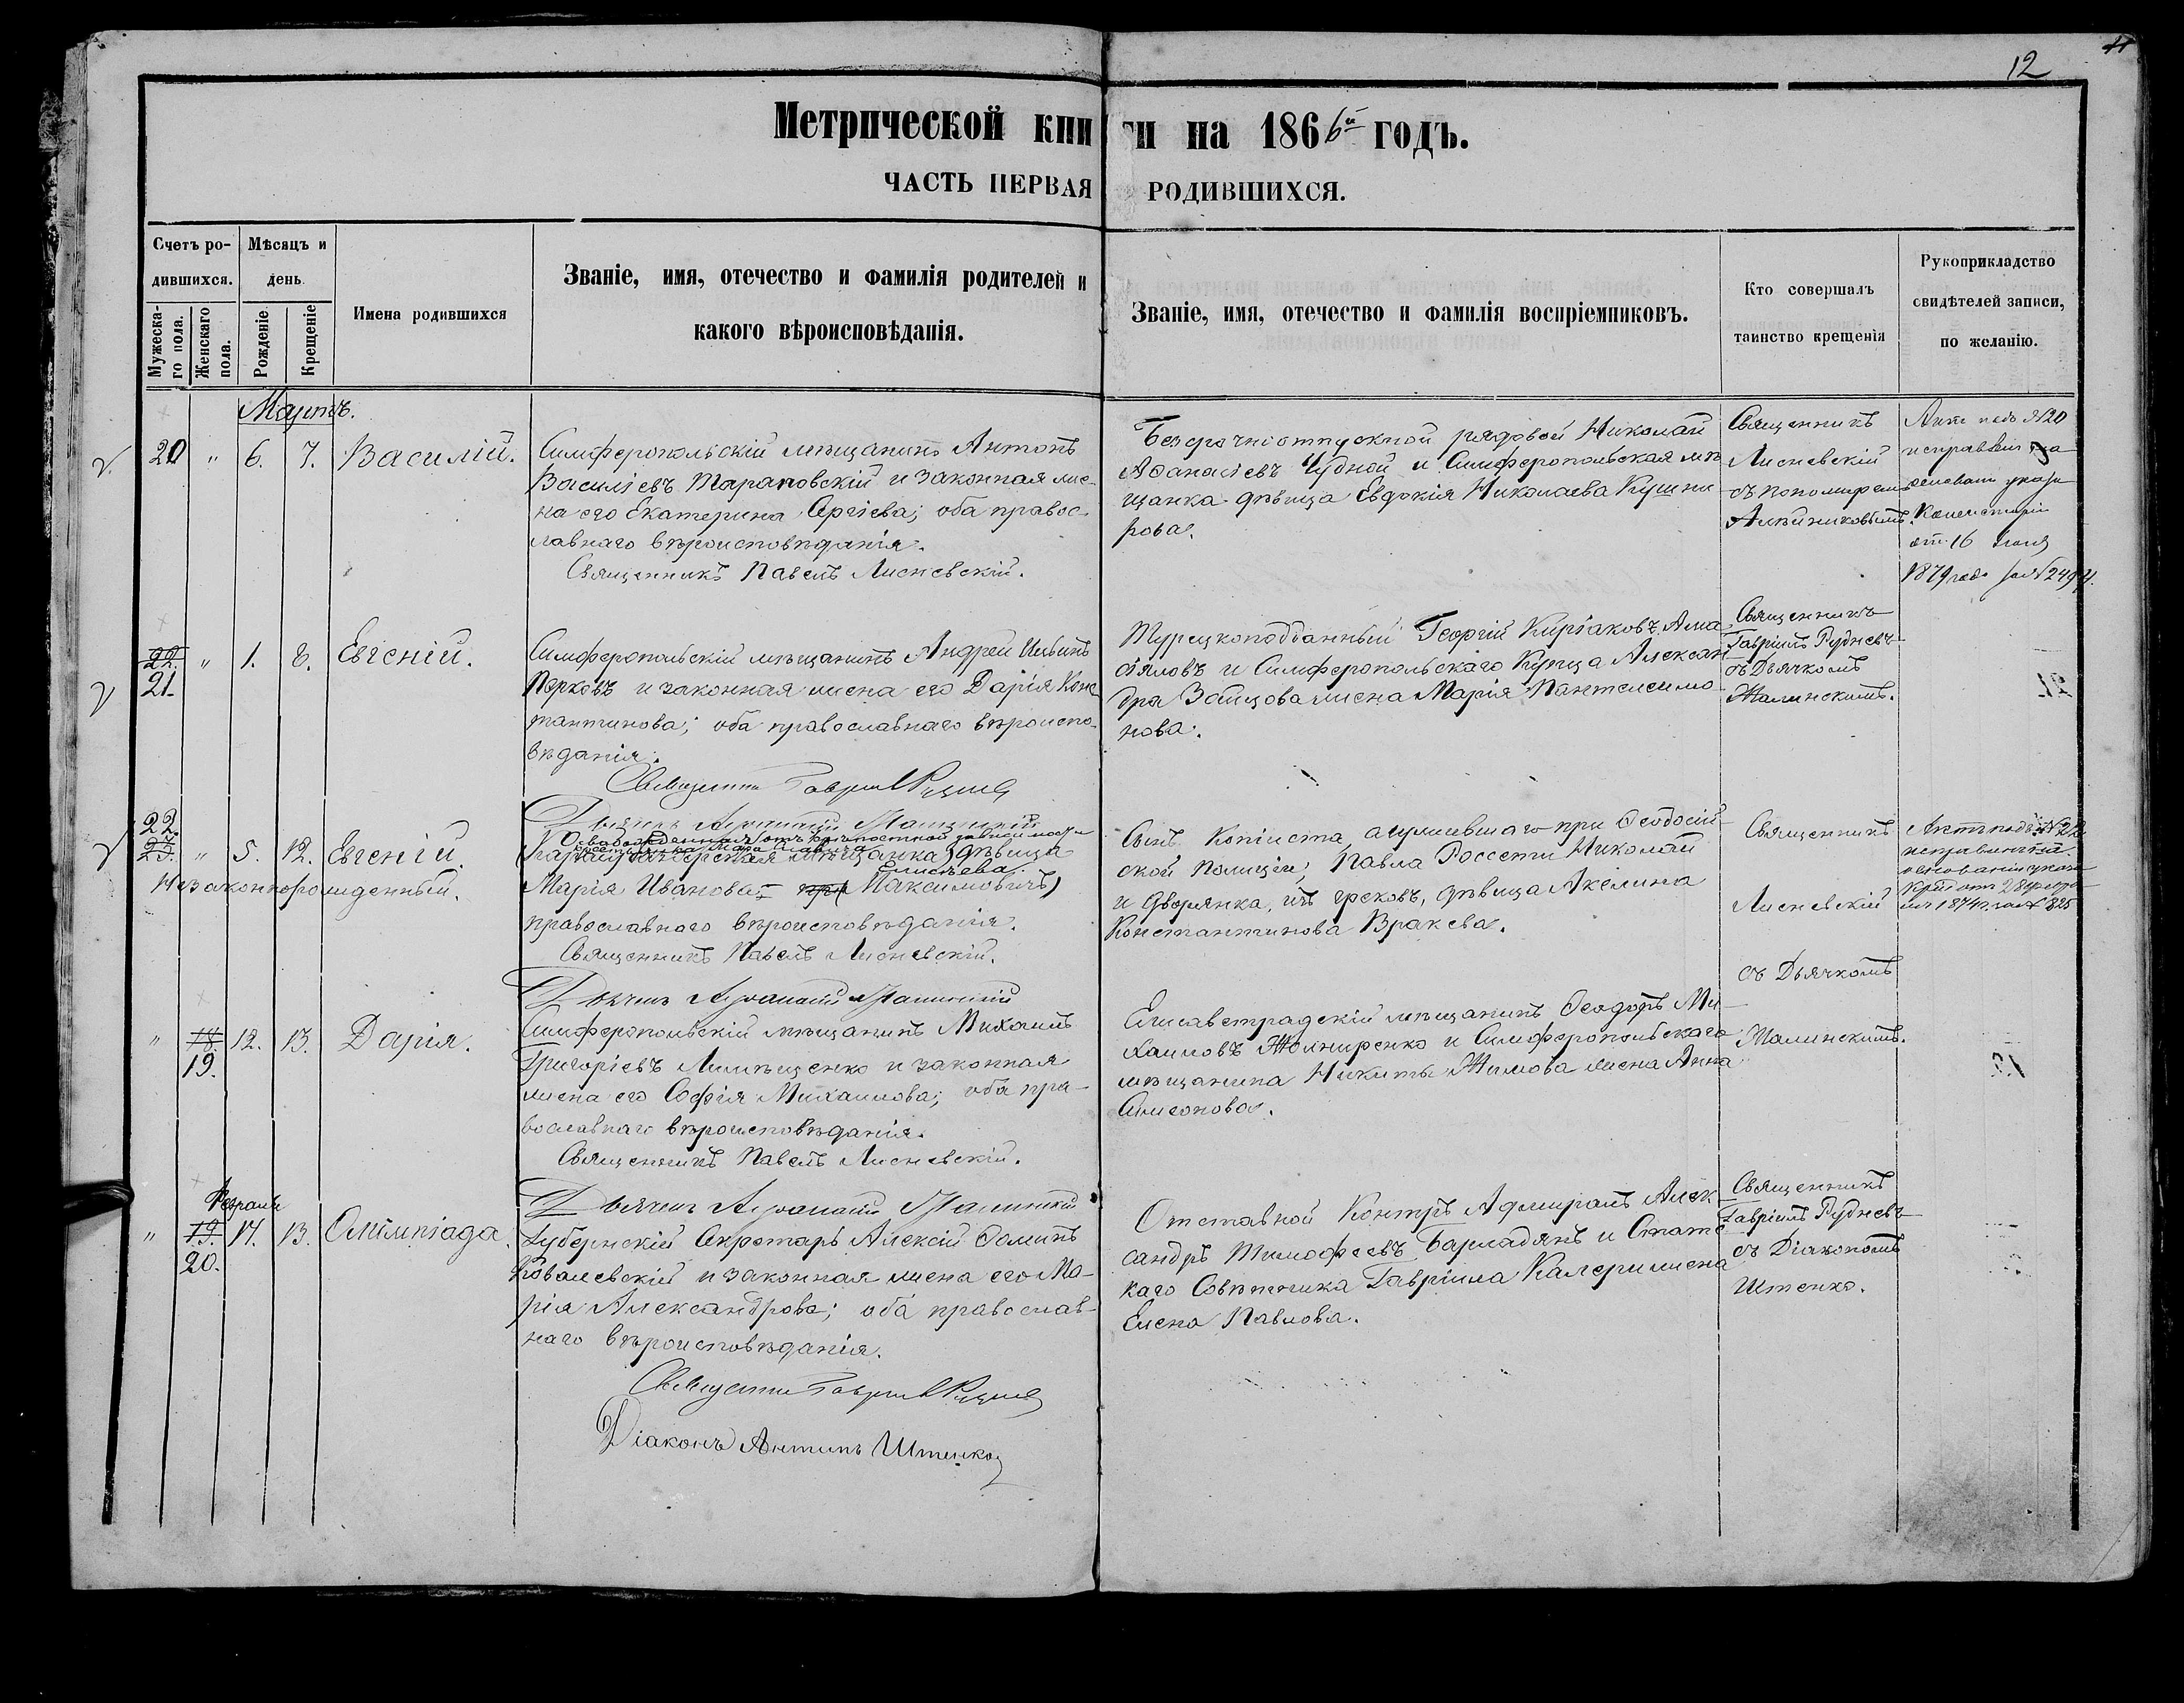 12
Метрической книги на 1866й годъ.
ЧАСТЬ ПЕРВАЯ РОДИВШИХСЯ.
Счетъ ро-
дившихся.
Мужеска-
го пола.
Женскаго
пола.
Мѣсяцъ и
день.
Рожденіе.
Крещеніе
Имена родившихся
Званіе, имя, отечество и фамилія родителей и
какого вѣроисповѣданія.
Званіе, имя, отечество и фамилія воспріемниковъ.
Кто совершалъ
таинство крещенія
Рукоприкладство
свидѣтелей записи,
по желанію.
Мартъ.
20 " 6. 7. Василій.
Симферопольскій мѣщанинъ Антонъ
Васильевъ Тарановскій и законная же-
на его Екатерина Сергіева; оба правос-
лавнаго вѣроисповѣданія.
Священникъ Павелъ Лисневскій.
Безсрочноотпускной рядовой Николай
Аѳанасіевъ Чудной и Симферопольская мѣ
щанка дѣвица Евдокія Николаева Кушни
рова.
Священникъ
Лисневскій
съ пономаремъ
Алейниковымъ.
Актъ подъ №20
исправленъ на
основаніи указа
Консисторіи
отъ 16
1879 года за №2494.
22. " 1. 8. Евгеній.
21.
Симферопольскій мѣщанинъ Андрей
Перковъ и законная жена его Дарія Конс
тантинова; оба православнаго вѣроиспо-
вѣданія.
Священникъ Гавріилъ Рудневъ
Турецкоподданный Георгій Киріаковъ
и Симферопольскаго Купца Алексан
дра Зайцова жена Марія Пантелеимо
нова.
Священникъ
Гавріилъ Рудневъ
съ Дьячкомъ
Жалинскимъ.
22.
23. " 5. 12. Евгеній.
Незаконнорожденный.
Освобожденная отъ крѣпостной зависимости
мѣщанка) дѣвица
Елисѣева
Марія Иванова Максимовичъ)
православнаго вѣроисповѣданія.
Священникъ Павелъ Лисневскій.
Сынъ Копіиста, служившаго при Ѳеодосій-
ской Полиціи, Павла Россети Николай
и дворянка, изъ грековъ, дѣвица Акилина
Константинова Вракева.
Священникъ
Лисневскій
съ Дьячкомъ
Жалинскимъ.
Актъ подъ №22
исправленъ на
основаніи указа
1874 г. за № 825
" 18. 12. 13. Дарія.
19.
Симферопольскій мѣщанинъ Михаилъ
Григорьевъ и законная
жена его Софія Михаилова; оба пра-
вославнаго вѣроисповѣданія.
Священникъ Павелъ Лисневскій.
Елисаветградскій мѣщанинъ Ѳеодоръ Ми-
хаиловъ Жолниренко и Симферопольскаго
мѣщанина Никиты Жилова жена Анна
Симеонова.
Февраль
" 19. 17. 13. Олимпіада.
20.
Губернскій Секретарь Алексій Ѳоминъ
Ковалевскій и законная жена его Ма-
рія Александрова; оба православ-
наго вѣроисповѣданія.
Священникъ Гавріилъ Рудневъ
Діаконъ Антипъ Штенко
Отставной Контръ Адмиралъ Алек-
сандръ Тимофеевъ Варладянъ и Статс
каго Совѣтника Гавріила Калери жена
Елена Павлова.
Священникъ
Гавріилъ Рудневъ
съ Діакономъ
Штенко.